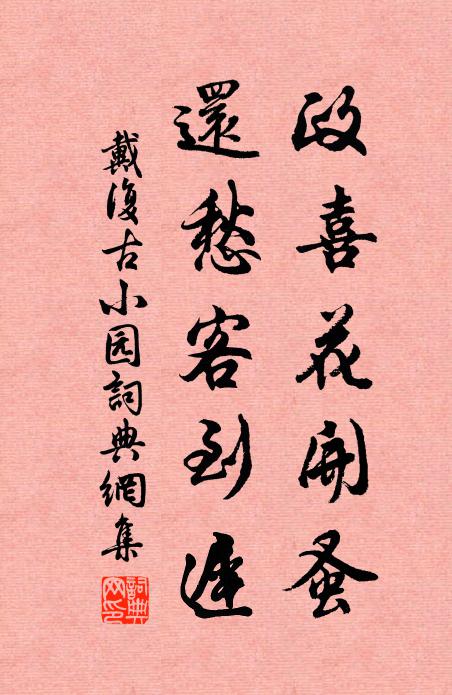 政喜花開蚤
還愁客到遲
戴復古小园詞典網集
詞典網印